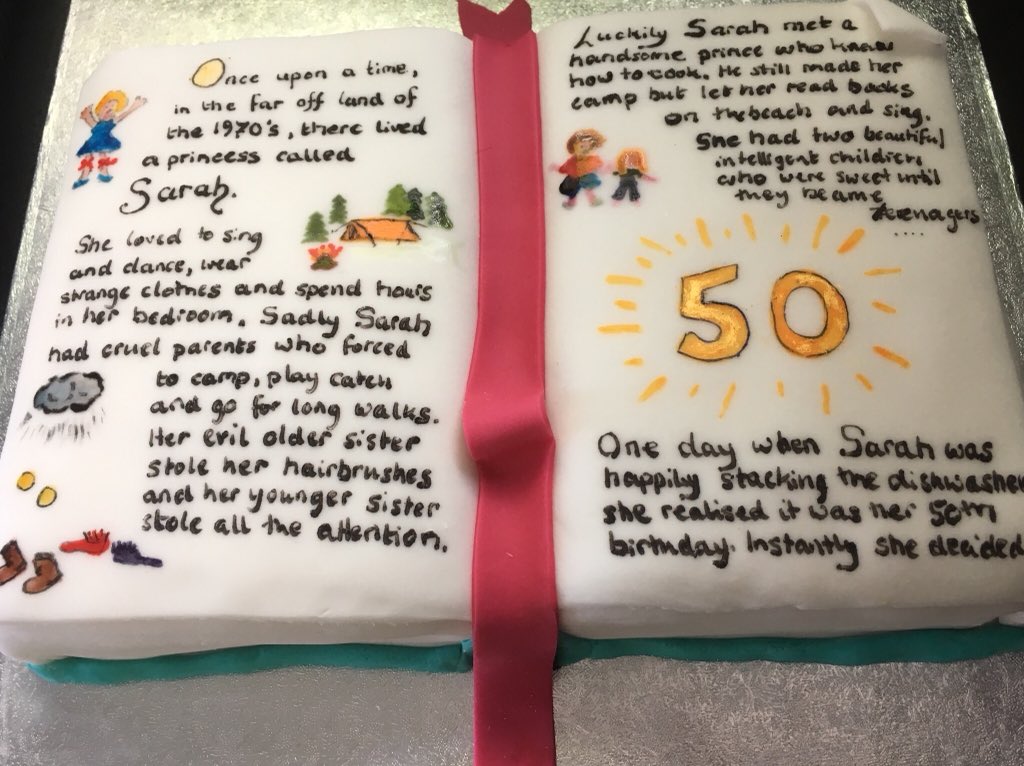 Once upon a time,
in the far off land of
the 1970's, there lived
a princess called
Sarah.
She loved to sing
and dance, wear
strange clothes and spend hours
in her bedroom. Sadly Sarah
had cruel parents who forced
to camp, play catch
and go for long walks.
Her evil older sister
stole her hairbrushes
and her younger sister
stole all the attention.
Luckily Sarah met a
handsome prince who knew
how to cook. He still made her
camp but let her read books
on the beach and sing.
She had two beautiful
intelligent children
who were sweet until
they became
teenagers
....
50
One day when Sarah was
happily stacking the dishwasher
she realised it was her 50th
birthday. Instantly she decided